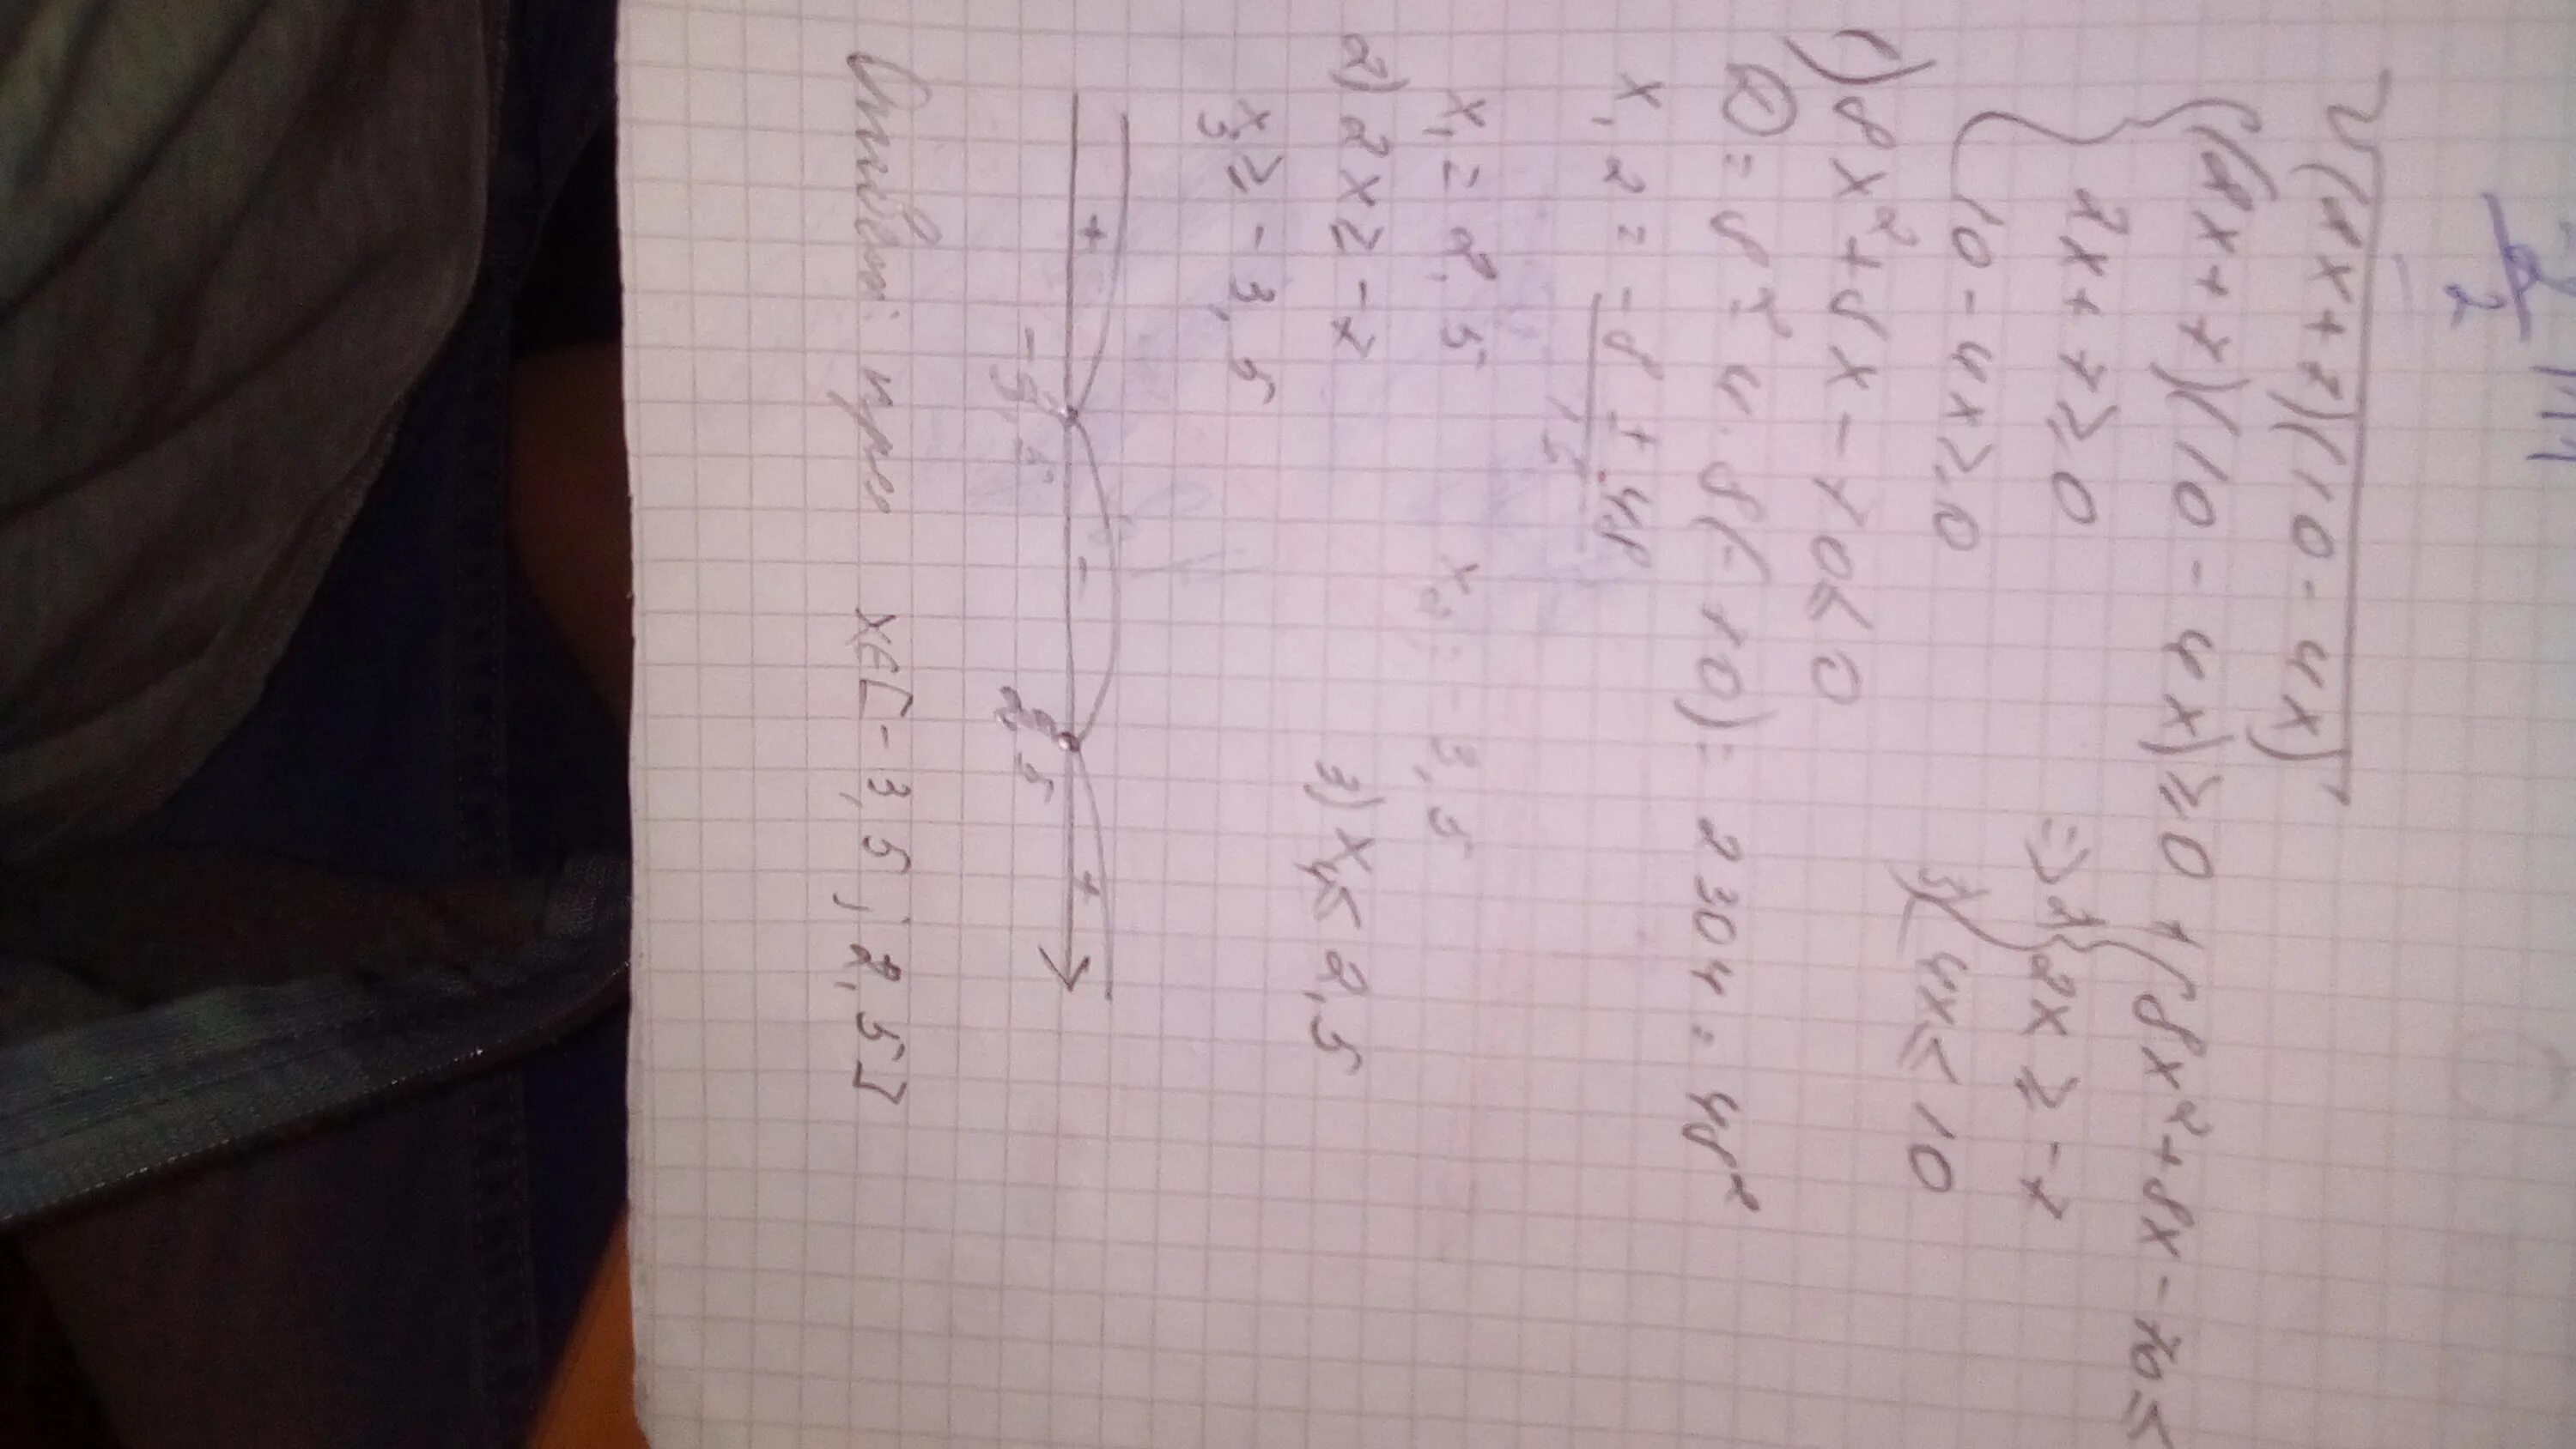 √(2x+7)(10-4x)
{(2x+7)(10-4x)≥0
2x+7≥0
10-4x≥0
⇒
1{8x²+8x-70≤
2{2x≥-7
3){4x≤10
1) 8x²+8x-70≤0
D=8² 4·8(-70)=2304=48²
x₁,₂=(-8±48)/15
x₁=2,5 x₂=-3,5
2) 2x≥-7 3) x₄≤2,5
x₃≥-3,5
+ - +
-3,5 2,5
Ответ: при x∈[-3,5; 2,5]